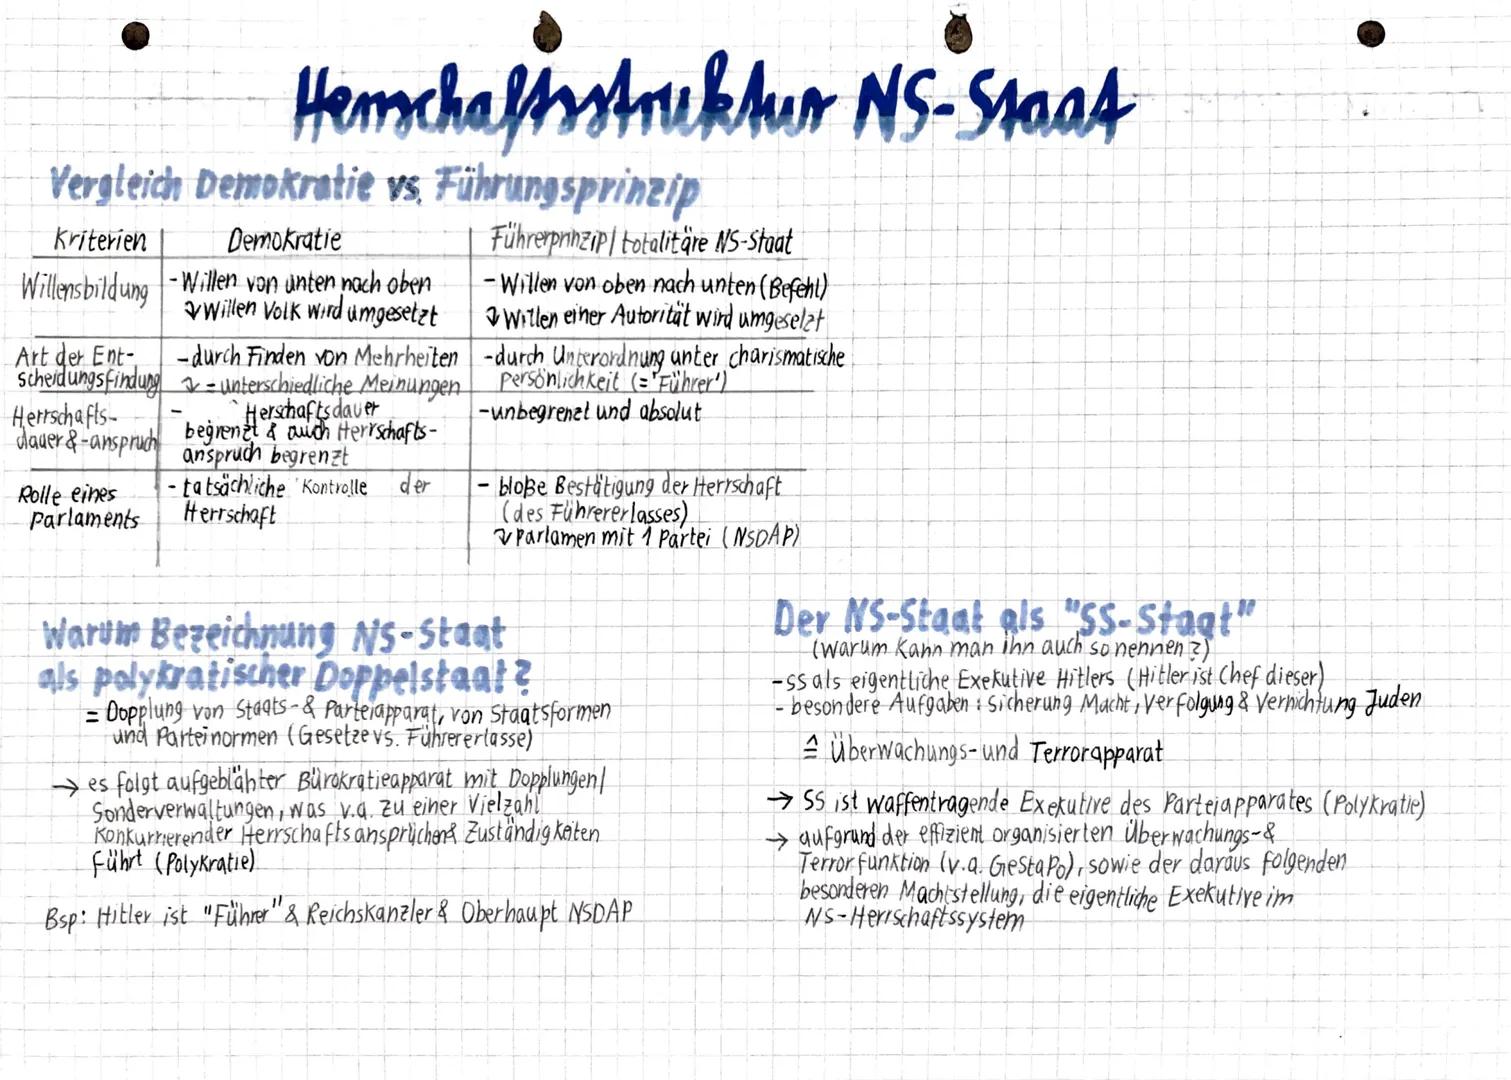 Herrschaftsstruktur NS-Staat
Vergleich Demokratie vs. Führungsprinzip
Kriterien | Demokratie | Führerprinzip/totalitäre NS-Staat
Willensbildung | - Willen von unten nach oben | - Willen von oben nach unten (Befehl)
↳ Willen Volk wird umgesetzt | ↳ Willen einer Autorität wird umgesetzt
Art der Ent- | - durch Finden von Mehrheiten | - durch Unterordnung unter charismatische
scheidungsfindung | ↳ = unterschiedliche Meinungen | Persönlichkeit (= "Führer")
Herrschafts- | - Herschaftsdauer | - unbegrenzt und absolut
dauer & -anspruch | begrenzt & auch Herrschafts-
anspruch begrenzt
Rolle eines | - tatsächliche Kontrolle der | - bloße Bestätigung der Herrschaft
Parlaments | Herrschaft | (des Führererlasses)
↳ Parlamen mit 1 Partei (NSDAP)
Warum Bezeichnung NS-Staat
als polykratischer Doppelstaat?
= Dopplung von Staats- & Parteiapparat, von Staatsformen
und Parteinormen (Gesetze vs. Führererlasse)
→ es folgt aufgeblähter Bürokratieapparat mit Dopplungen/
Sonderverwaltungen, was v.a. zu einer Vielzahl
Konkurrierender Herrschaftsansprüchen & Zuständigkeiten
führt (Polykratie)
Bsp: Hitler ist "Führer" & Reichskanzler & Oberhaupt NSDAP
Der NS-Staat als "SS-Staat"
(warum kann man ihn auch so nennen?)
- SS als eigentliche Exekutive Hitlers (Hitler ist Chef dieser)
- besondere Aufgaben: Sicherung Macht, Verfolgung & Vernichtung Juden
≙ Überwachungs- und Terrorapparat
→ SS ist waffentragende Exekutive des Parteiapparates (Polykratie)
→ aufgrund der effizient organisierten Überwachungs- &
Terrorfunktion (v.a. GeStaPo), sowie der daraus folgenden
besonderen Machtstellung, die eigentliche Exekutive im
NS-Herrschaftssystem